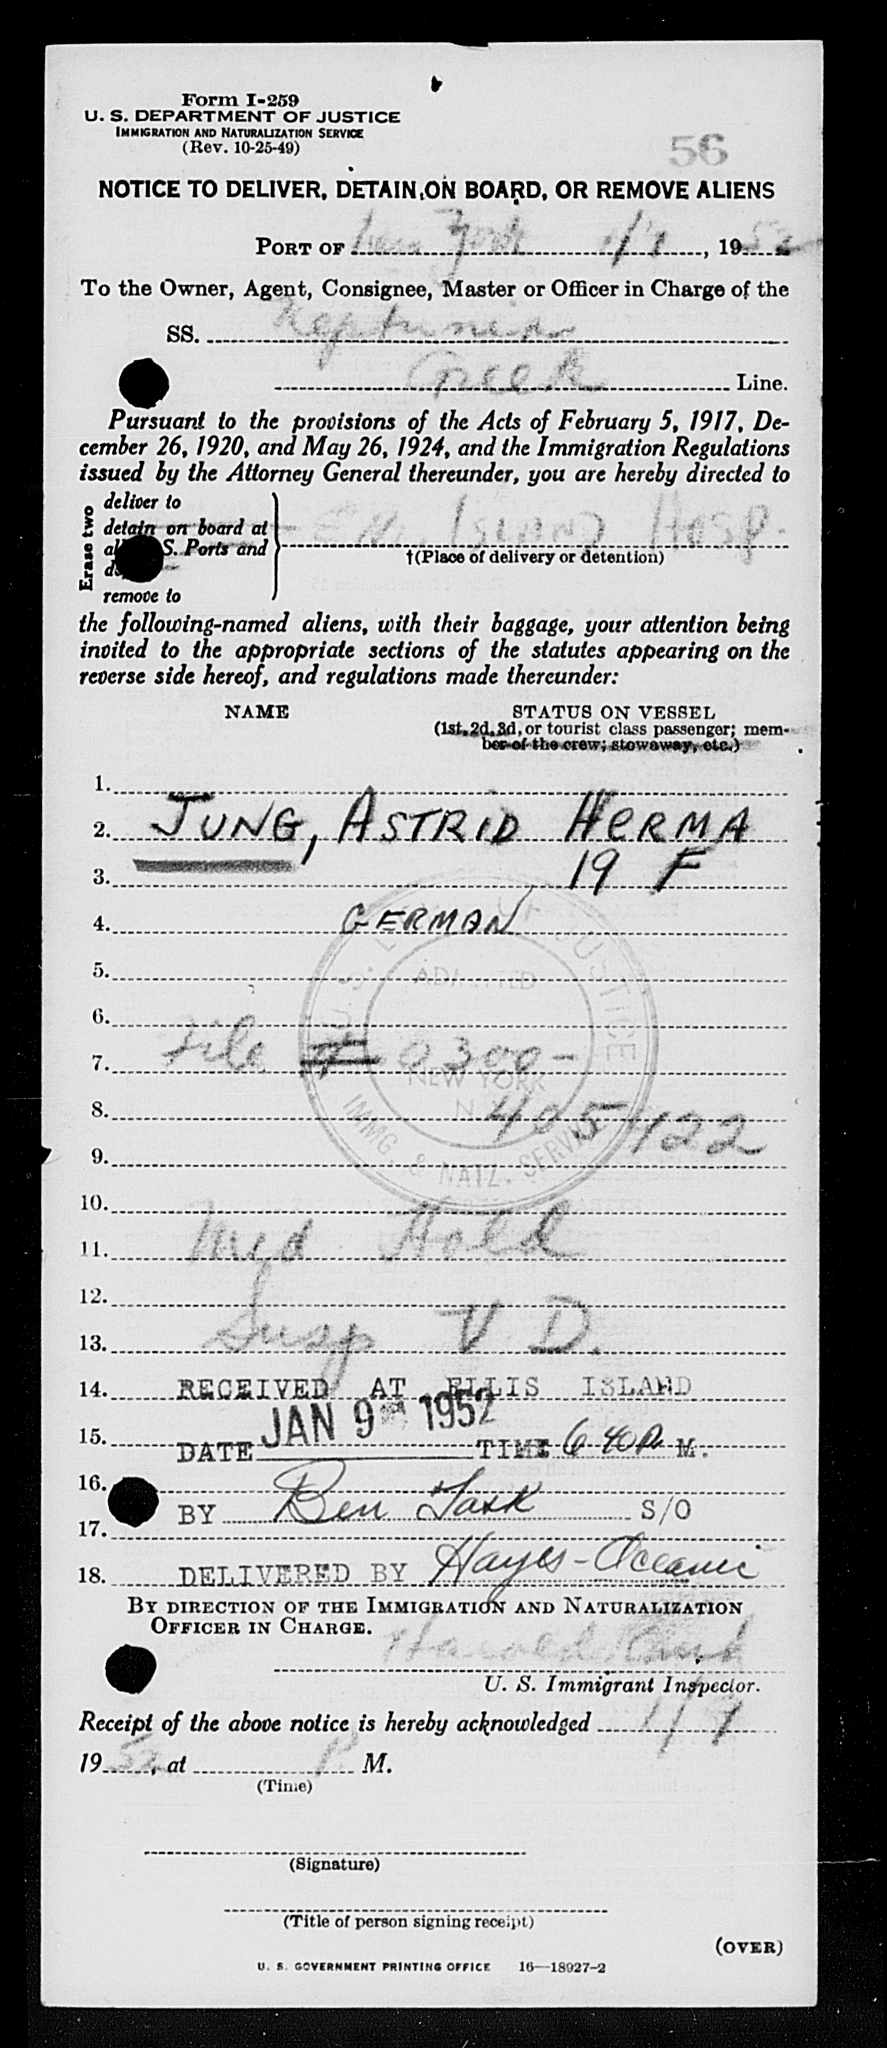 Form I-259
U. S. DEPARTMENT OF JUSTICE
IMMIGRATION AND NATURALIZATION SERVICE
(Rev. 10-25-49)
56
NOTICE TO DELIVER, DETAIN ON BOARD, OR REMOVE ALIENS
PORT OF New York 1/9, 1952
To the Owner, Agent, Consignee, Master or Officer in Charge of the
SS. Neptunia
Greek Line.
Pursuant to the provisions of the Acts of February 5, 1917, De-
cember 26, 1920, and May 26, 1924, and the Immigration Regulations
issued by the Attorney General thereunder, you are hereby directed to
Erase two
deliver to
detain on board at
S. Ports and
remove to
ISLAND HOSP.
†(Place of delivery or detention)
the following-named aliens, with their baggage, your attention being
invited to the appropriate sections of the statutes appearing on the
reverse side hereof, and regulations made thereunder:
NAME STATUS ON VESSEL
(1st, 2d, 3d, or tourist class passenger; mem-
ber of the crew; stowaway, etc.)
1.
2. JUNG, ASTRID HERMA
3. 19 F
4. GERMAN
5.
6.
7. File # 0300-
8. 405422
9.
U.S. DEPT. OF JUSTICE
ADMITTED
NEW YORK
N.Y.
IMMG. & NATZ. SERVICE
10.
11. Med Hold
12.
13. Susp V D.
14. RECEIVED AT ELLIS ISLAND
15. DATE JAN 9 1952 TIME 6 40 P. M.
16.
BY Ben Task S/O
17.
18. DELIVERED BY Hayes-Oceanic
BY DIRECTION OF THE IMMIGRATION AND NATURALIZATION
OFFICER IN CHARGE.
Harold
U. S. Immigrant Inspector.
Receipt of the above notice is hereby acknowledged 1/9
1952, at P. M.
(Time)
(Signature)
(Title of person signing receipt)
(OVER)
U. S. GOVERNMENT PRINTING OFFICE 16—18927-2